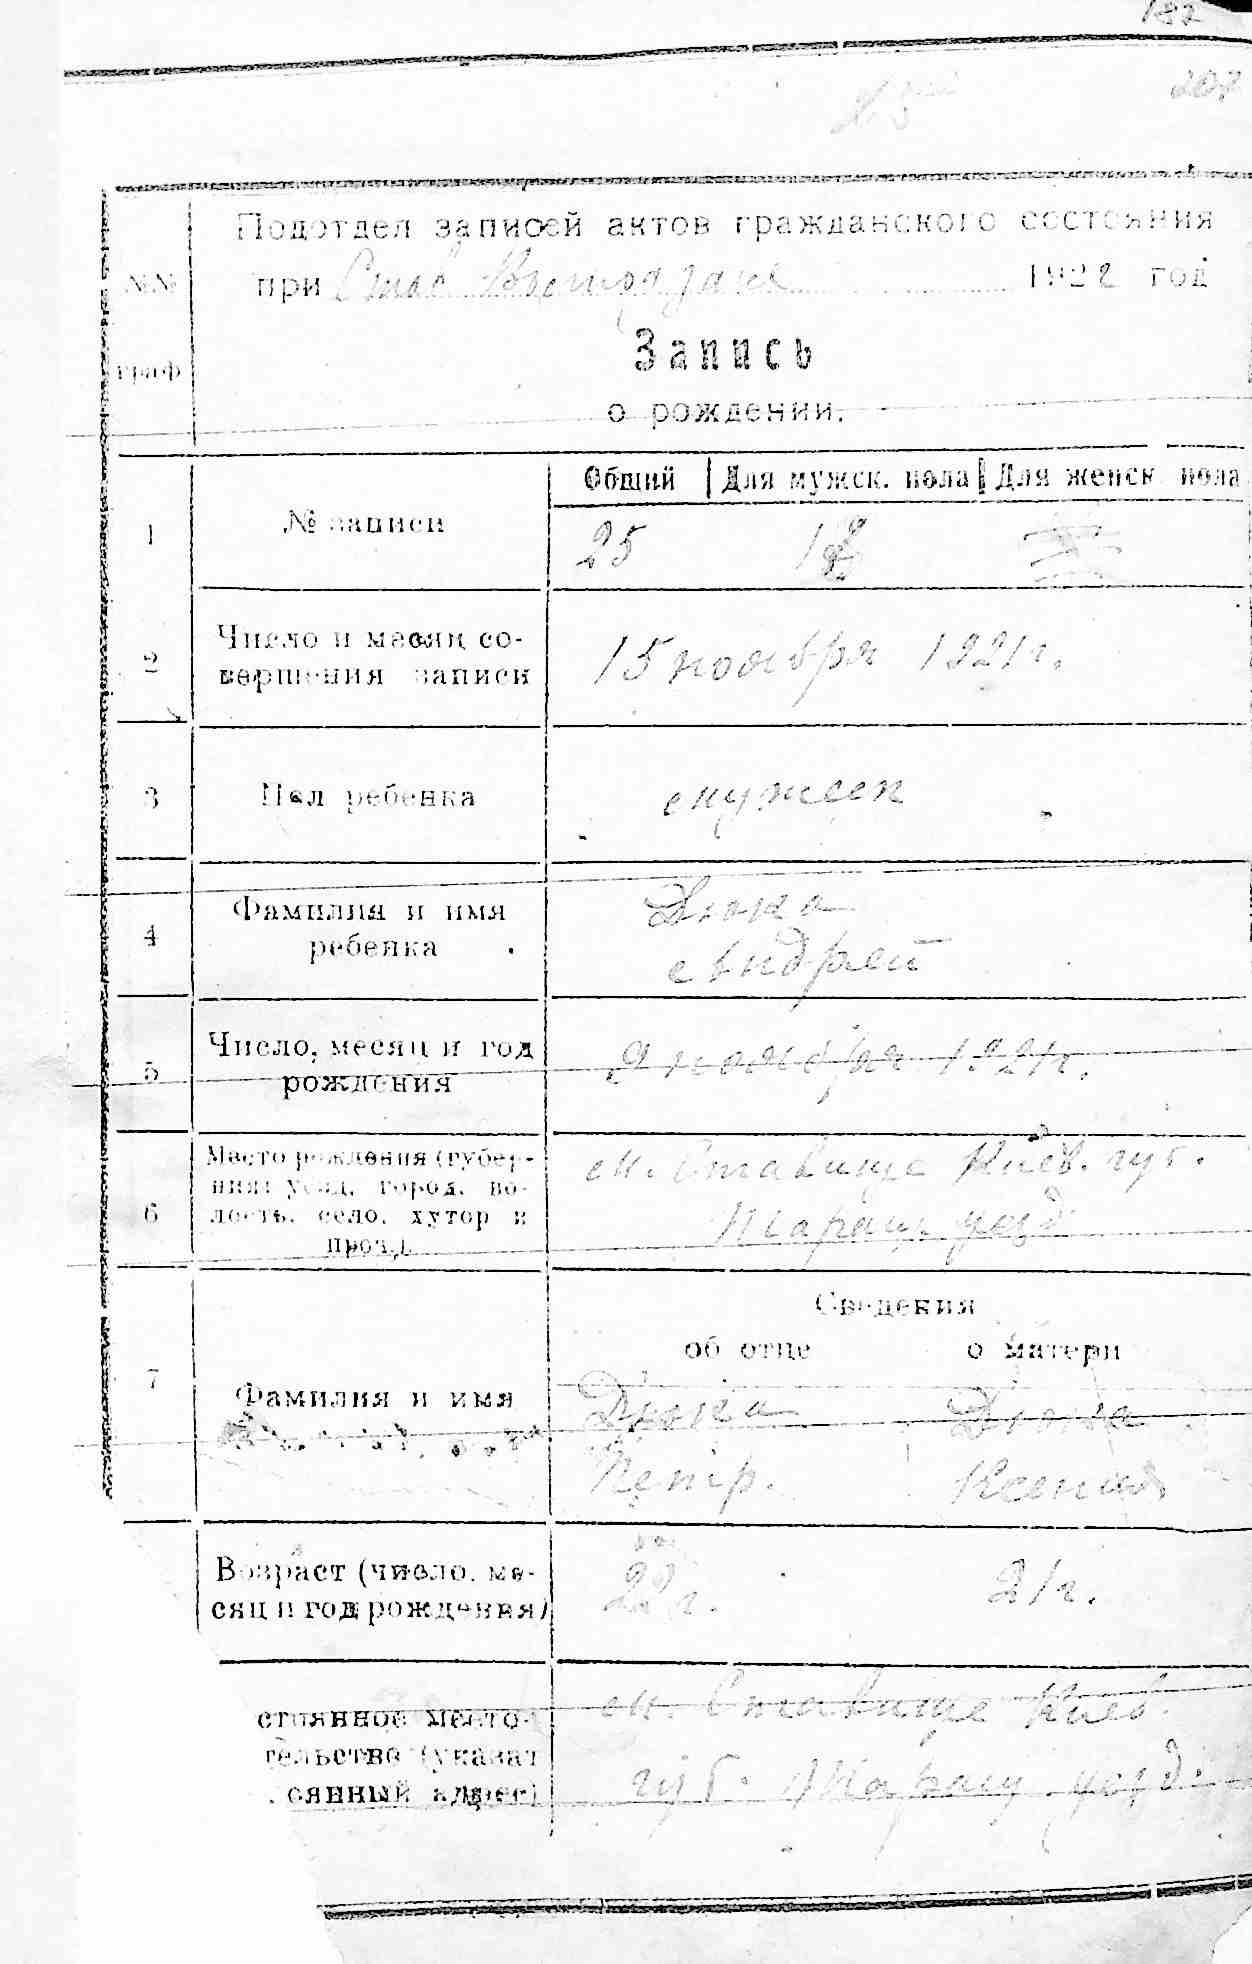 182
207
Подотдел записей актов гражданского состояния
№№ при Став. 1922 год
граф
Запись
о рождении.
Общий Для мужск. пола Для женск. пола
1 № записи 25
2 Число и месяц со-
вершения записи 15 ноября 1921 г.
3 Пол ребенка мужеск
4 Фамилия и имя
ребенка Дюка
Андрей
5 Число, месяц и год
рождения 9 ноября 1921 г.
6 Место рождения (губер-
ния уезд, город, во-
лость, село, хутор и
проз.) м. Ставище Киев. губ.
Таращ. уезд
Сведения
об отце о матери
7 Фамилия и имя Дюка Дюка
Петр. Ксения
Возраст (число, ме-
сяц и год рождения) 22 г. 21 г.
стоянное место-
тельство (указат
оянный адрес) м. Ставище Киев.
губ. Таращ уезд.